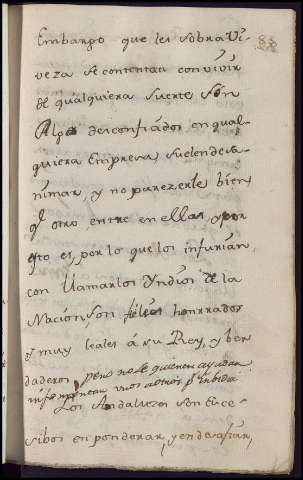 88
Embargo que les sobra Vi-
veza se contentan con vivir
de qualquiera suerte son
Algo desconfiados en qual-
quiera Empresa suelen desa-
nimar, y no parezerle bien
q̃ otro entre en ellas, y por
esto es, por lo que los injurian,
con llamarlos Yndios de la
Nacion, son fieles honrrados
y muy leales a su Rey, y ber
daderos, pero no se quieren ayudar
unos a otros p.r inbidia
Los Andaluzes son Exce-
sibos en ponderar, y en desafiar,